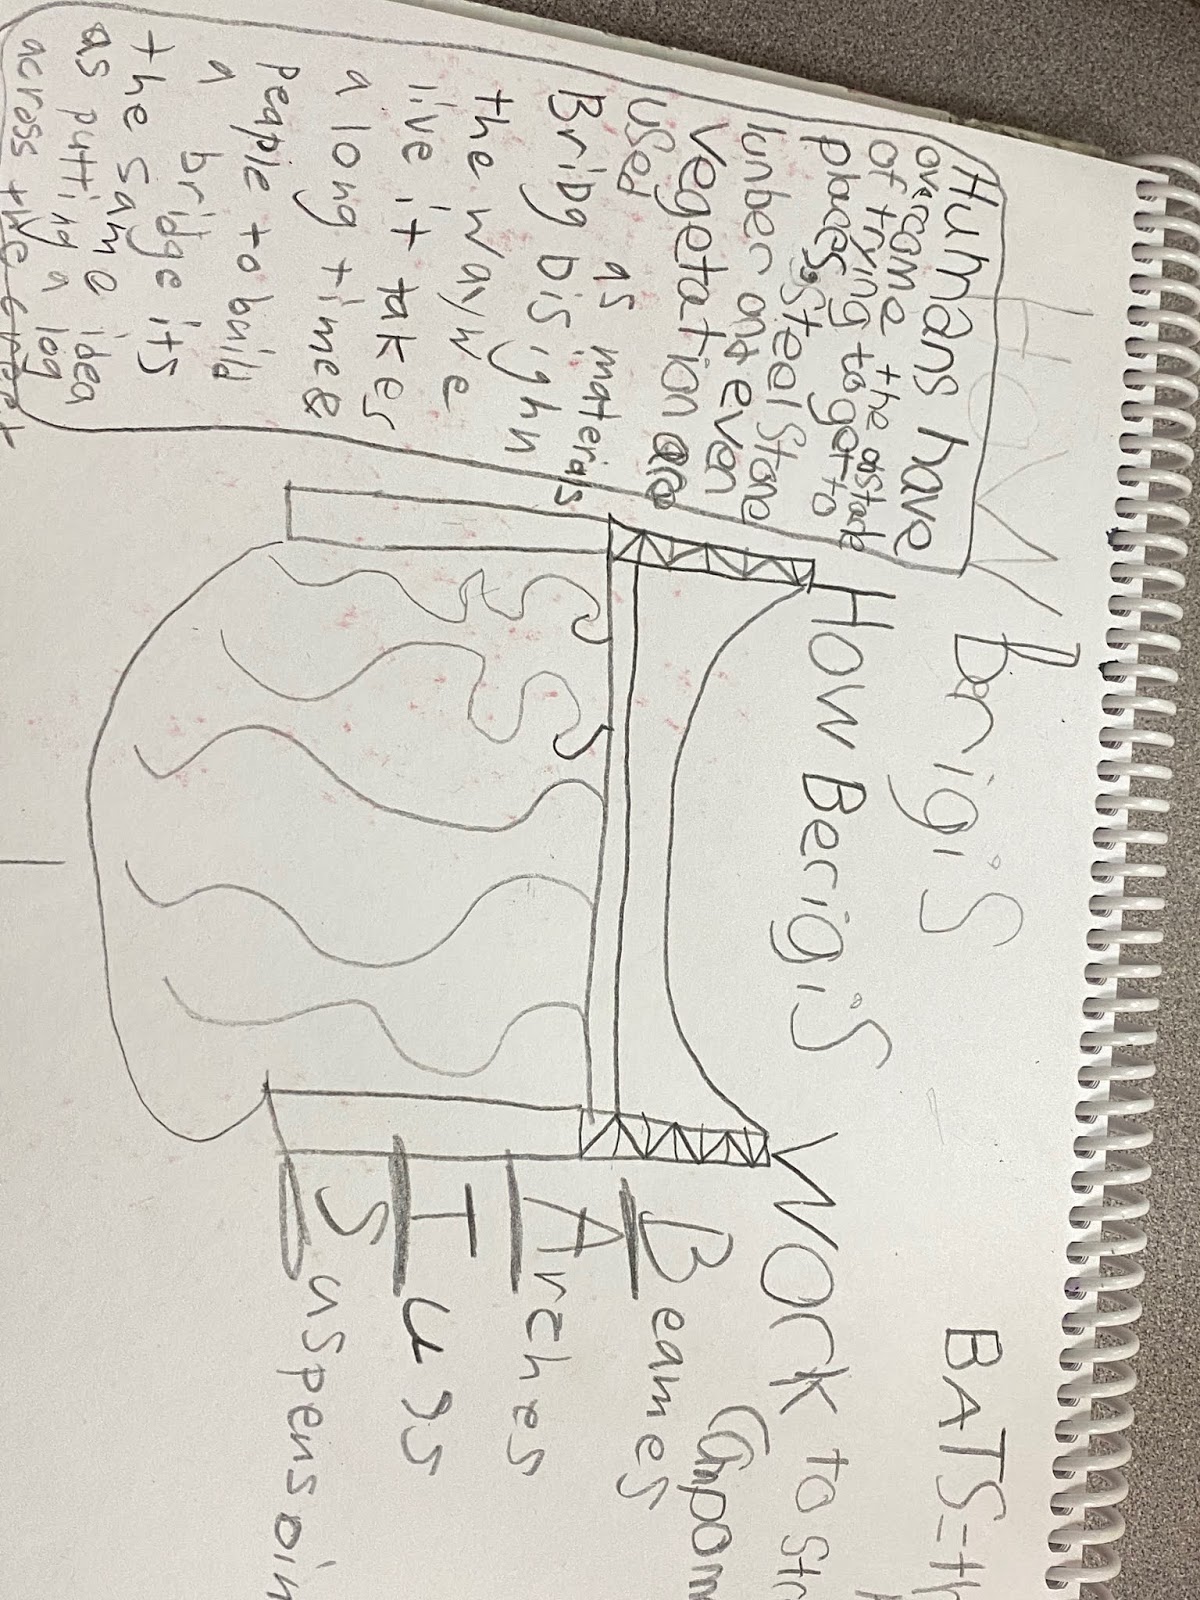 BATS=th
BrigiS
How BerigiS Work to Str
Humans have
overcame the obstacle
of trying to get to
places, Steel Stone
lunber and even
Vegetation are
used as materials
Bridg Disighn
the waywe
live it takes
a long time &
people to build
a bridge its
the same idea
as putting a log
across the creet
(Compon
Beames
Arches
Suspensoin